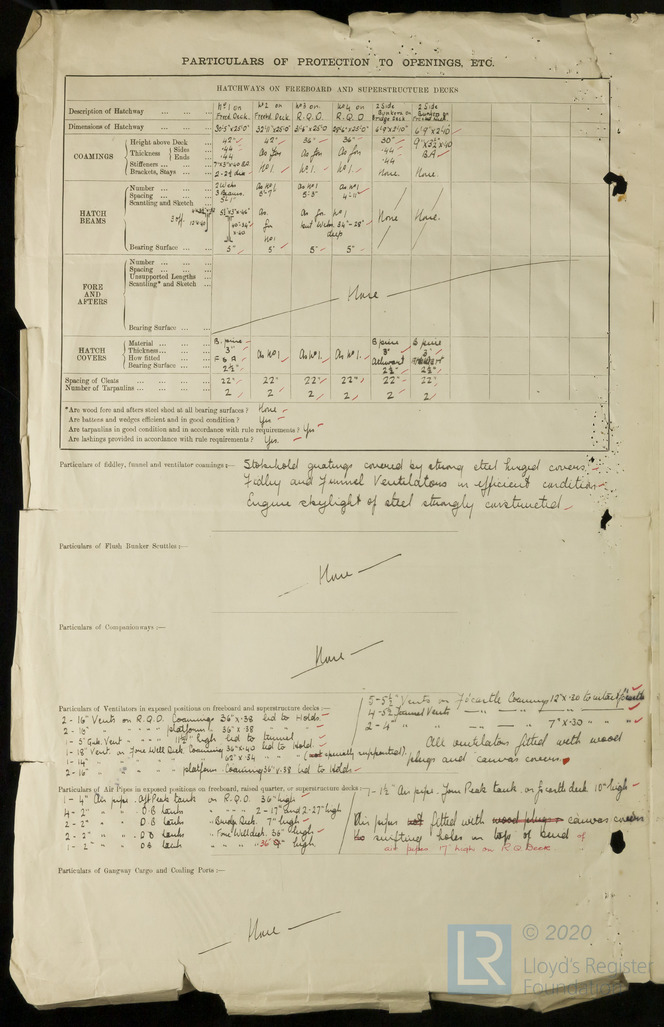 PARTICULARS OF PROTECTION TO OPENINGS, ETC.
HATCHWAYS ON FREEBOARD AND SUPERSTRUCTURE DECKS
Description of Hatchway ... ... ... No 1 on Freeb. Deck. No 2 on Freeb. Deck No 3 on R.Q.D. No 4 on R.Q.D 2 Side Bunkers on Bridge Deck. 2 Side Bunkers
Dimensions of Hatchway ... ... ... 30'-5"x25'0" 25'0" 25'0" 25'0" 6'9"x2'10" 6'9"x2'10"
COAMINGS
Height above Deck ... 42" 42" 36" 36" 30"
Thickness { Sides ... .44 As for As for As for .44
Ends ... .44 .44
Stiffeners ... ... ...
Brackets, Stays ... ... No 1. No 1. No 1. None. None.
HATCH BEAMS
Number ... ... ... 2 Webs As No 1 As No 1 As No 1
Spacing ... ... ... 5'-7" 5'-3" 4'-11"
Scantling and Sketch ... As for No 1 As for No 1 but Webs 34"-28" deep None None.
Bearing Surface ... ... 5" 5" 5" 5"
FORE AND AFTERS
Number ... ... ...
Spacing ... ... ...
Unsupported Lengths ...
Scantling* and Sketch ... None
Bearing Surface ... ...
HATCH COVERS
Material ... ... ... B. pine B pine B pine
Thickness ... ... ... 3" 3" 3"
How fitted ... F & A As No 1. As No 1. As No 1. Athwart
Bearing Surface ... ... 2½" 2½" 2½"
Spacing of Cleats ... ... ... ... 22" 22" 22" 22" 22" 22"
Number of Tarpaulins ... ... ... 2 2 2 2 2 2
*Are wood fore and afters steel shod at all bearing surfaces ? None
Are battens and wedges efficient and in good condition ? Yes
Are tarpaulins in good condition and in accordance with rule requirements ? Yes
Are lashings provided in accordance with rule requirements ? Yes.
Particulars of fiddley, funnel and ventilator coamings :— Stokehold gratings covered by strong steel hinged covers.
Fidley and Funnel Ventilators in efficient condition
Engine skylight of steel strongly constructed
Particulars of Flush Bunker Scuttles :—
None
Particulars of Companionways :—
None
Particulars of Ventilators in exposed positions on freeboard and superstructure decks :—
2 - 16" Vents on R.Q.D. Coamings 36" x .38 led to Holds.
2 - 16" " " " platform " 36" x .38
1 - 5" Vent - " 11'6" high led to tunnel
1 - 18" Vent. on Fore Well Deck. Coaming 36" x .40 led to Hold.
1 - 14" " " " 62" x .34 " " (not specially supported).
2 - 16" " platform. Coaming 36" x .38 led to Holds
5 - 5½" Vents on F'ocastle Coaming 12" x .30
4 - 5½ Vents
2 - 4" " " 7" x .30 " "
All ventilators fitted with wood
plugs and canvas covers.
Particulars of Air Pipes in exposed positions on freeboard, raised quarter, or superstructure decks :—
1 - 4" Air pipe. Aft Peak tank on R.Q.D. 36" high
4 - 2" " D.B tanks " " 2-17" and 2-27" high
2 - 2" " D.B tanks " Bridge Deck. 7" high
2 - 2" " D B tanks " Fore Well deck. 36" high
1 - 2" " D B tank " " " 36" high
1 - 1½" Air pipe. Fore Peak tank. on forecastle deck 10" high
Air pipes not fitted with wood plugs canvas covers
to holes in top of bend of
air pipes 17" high on R.Q. Deck.
Particulars of Gangway Cargo and Coaling Ports :—
None
LR © 2020
Lloyd's Register
Foundation